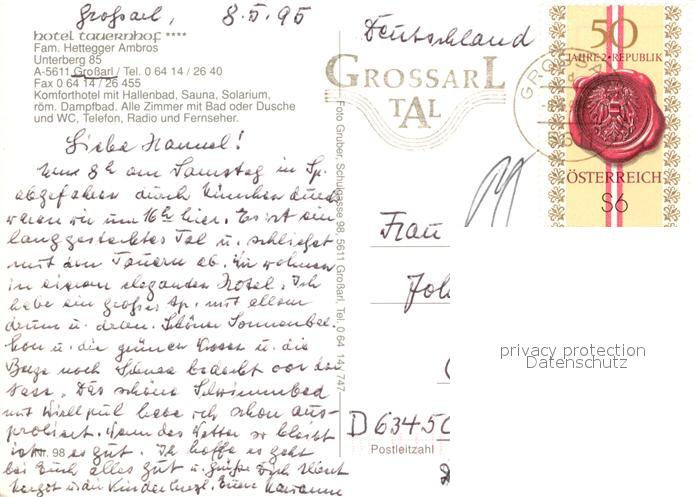 Großarl, 8.5.95
hotel tauernhof ****
Fam. Hettegger Ambros
Unterberg 85
A-5611 Großarl / Tel. 0 64 14 / 26 40
Fax 0 64 14 / 26 455
Komforthotel mit Hallenbad, Sauna, Solarium,
röm. Dampfbad. Alle Zimmer mit Bad oder Dusche
und WC, Telefon, Radio und Fernseher.
Liebe Hannel!
Um 8h am Samstag in Sp.
abgefahren durch München durch
waren wir um 16h hier. Es ist ein
langgestrecktes Tal u. schließt
mit den Tauern ab. Wir wohnen
in einem eleganten Hotel. Ich
habe ein großes Ap. mit allem
drum u. dran. Schöner Sonnenbal-
kon u. die grünen Wiesen u. die
Berge noch Schnee bedeckt vor der
Nase. Das schöne Schwimmbad
mit Wirlpul habe ich schon aus-
probiert. Wenn das Wetter so bleibt
ist es gut. Ich hoffe es geht
Nr. 98
bei Euch alles gut u. grüße Dich
Margot u. die Kinder herzl. Eure Marianne
Foto Gruber, Schulgasse 98, 5611 Großarl, Tel. 0 64 14 / 747
Deutschland
GROSSARL
TAL
GROSSA
50
JAHRE 2. REPUBLIK
ÖSTERREICH
S6
Frau
Joh
D 6345
Postleitzahl
privacy protection
Datenschutz